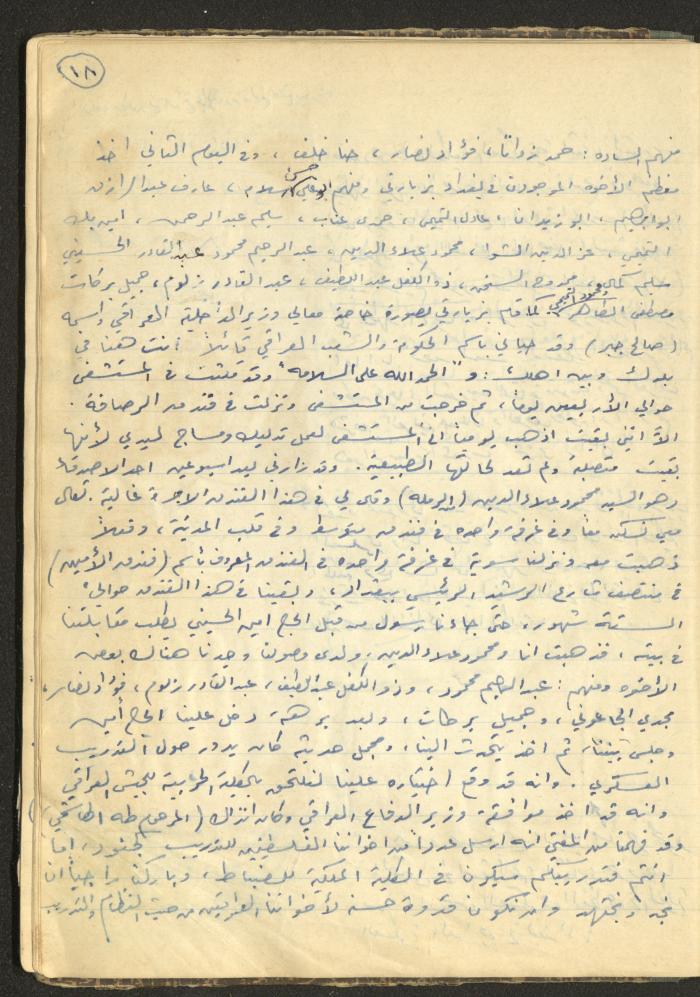 ١٨
منهم السادة: حمد زواتا، فؤاد نصار، حنا خلف، وفي اليوم الثاني اخذ
معظم الأخوه الموجودون في بغداد بزيارتي ومنهم ابو علي حسن سلامه، عارف عبد الرازق
ابو ابراهيم، ابو زيدان، عادل التميمي، حمدي غناب، سليم عبد الرحمن، امين بك
التميمي، عز الدين الشوا، محمود علاء الدين، عبد الرحيم محمود عبد القادر الحسيني
سليم كمال، ممدوح السخن، ذو الكفل عبد اللطيف، عبد القادر زلوم، جميل بركات
مصطفى الطاهر، كما قام بزيارتي بصورة خاصة معالي وزير الداخلية العراقي واسمه
(صالح جبر) وقد حياني باسم الحكومة والشعب العراقي قائلاً انت هنا في
بلدك وبين اهلك: و"الحمد لله على السلامه" وقد مكثت في المستشفى
حوالي الأربعين يوماً، ثم خرجت من المستشفى ونزلت في فندق الرصافة.
الا انني بقيت اذهب يومياً الى المستشفى لعمل تدليك ومساج ليدي لأنها
بقيت متصلبة ولم تعد لحالتها الطبيعية. وقد زارني بعد اسبوعين احد الاصدقاء
وهو السيد محمود علاء الدين (الرمله) وقال لي في هذا الفندق الاجرة غالية. تعال
معي نسكن معاً وفي غرفة واحده في فندق متوسط وفي قلب المدينة، وفعلاً
ذهبت معه ونزلنا سوية في غرفة واحده في الفندق المعروف باسم (فندق الأمين)
في منتصف شارع الرشيد الرئيسي ببغداد، وبقينا في هذا الفندق حوالي
الستة شهور، حتى جاءنا رسول من قبل الحاج امين الحسيني يطلب مقابلتنا
في بيته، فذهبت انا ومحمود علاء الدين، ولدى وصولنا وجدنا هناك بعض
الأخوه ومنهم: عبد الرحيم محمود، وذو الكفل عبد اللطيف، عبد القادر زلوم، فؤاد نصار،
مجدي الجاعوني، وجميل بركات، وبعد برهة، دخل علينا الحاج أمين
وجلس بيننا، ثم اخذ يتحدث الينا، ومجمل حديثه كان يدور حول التدريب
العسكري. وانه قد وقع اختياره علينا لنلتحق بالكلية الحربية للجيش العراقي
وانه قد اخذ موافقة وزير الدفاع العراقي وكان انذاك (المرحوم طه الهاشمي)
وقد فهمنا من المفتي انه ارسل عدداً من اخواننا الفلسطينين للتدريب كجنود، اما
انتم فتدريبكم سيكون في الكلية الملكية للضباط، وباركنا راجياً ان
نجد ونجتهد وان نكون قدوة حسنه لأخواننا العراقيين من حيث النظام والتدريب